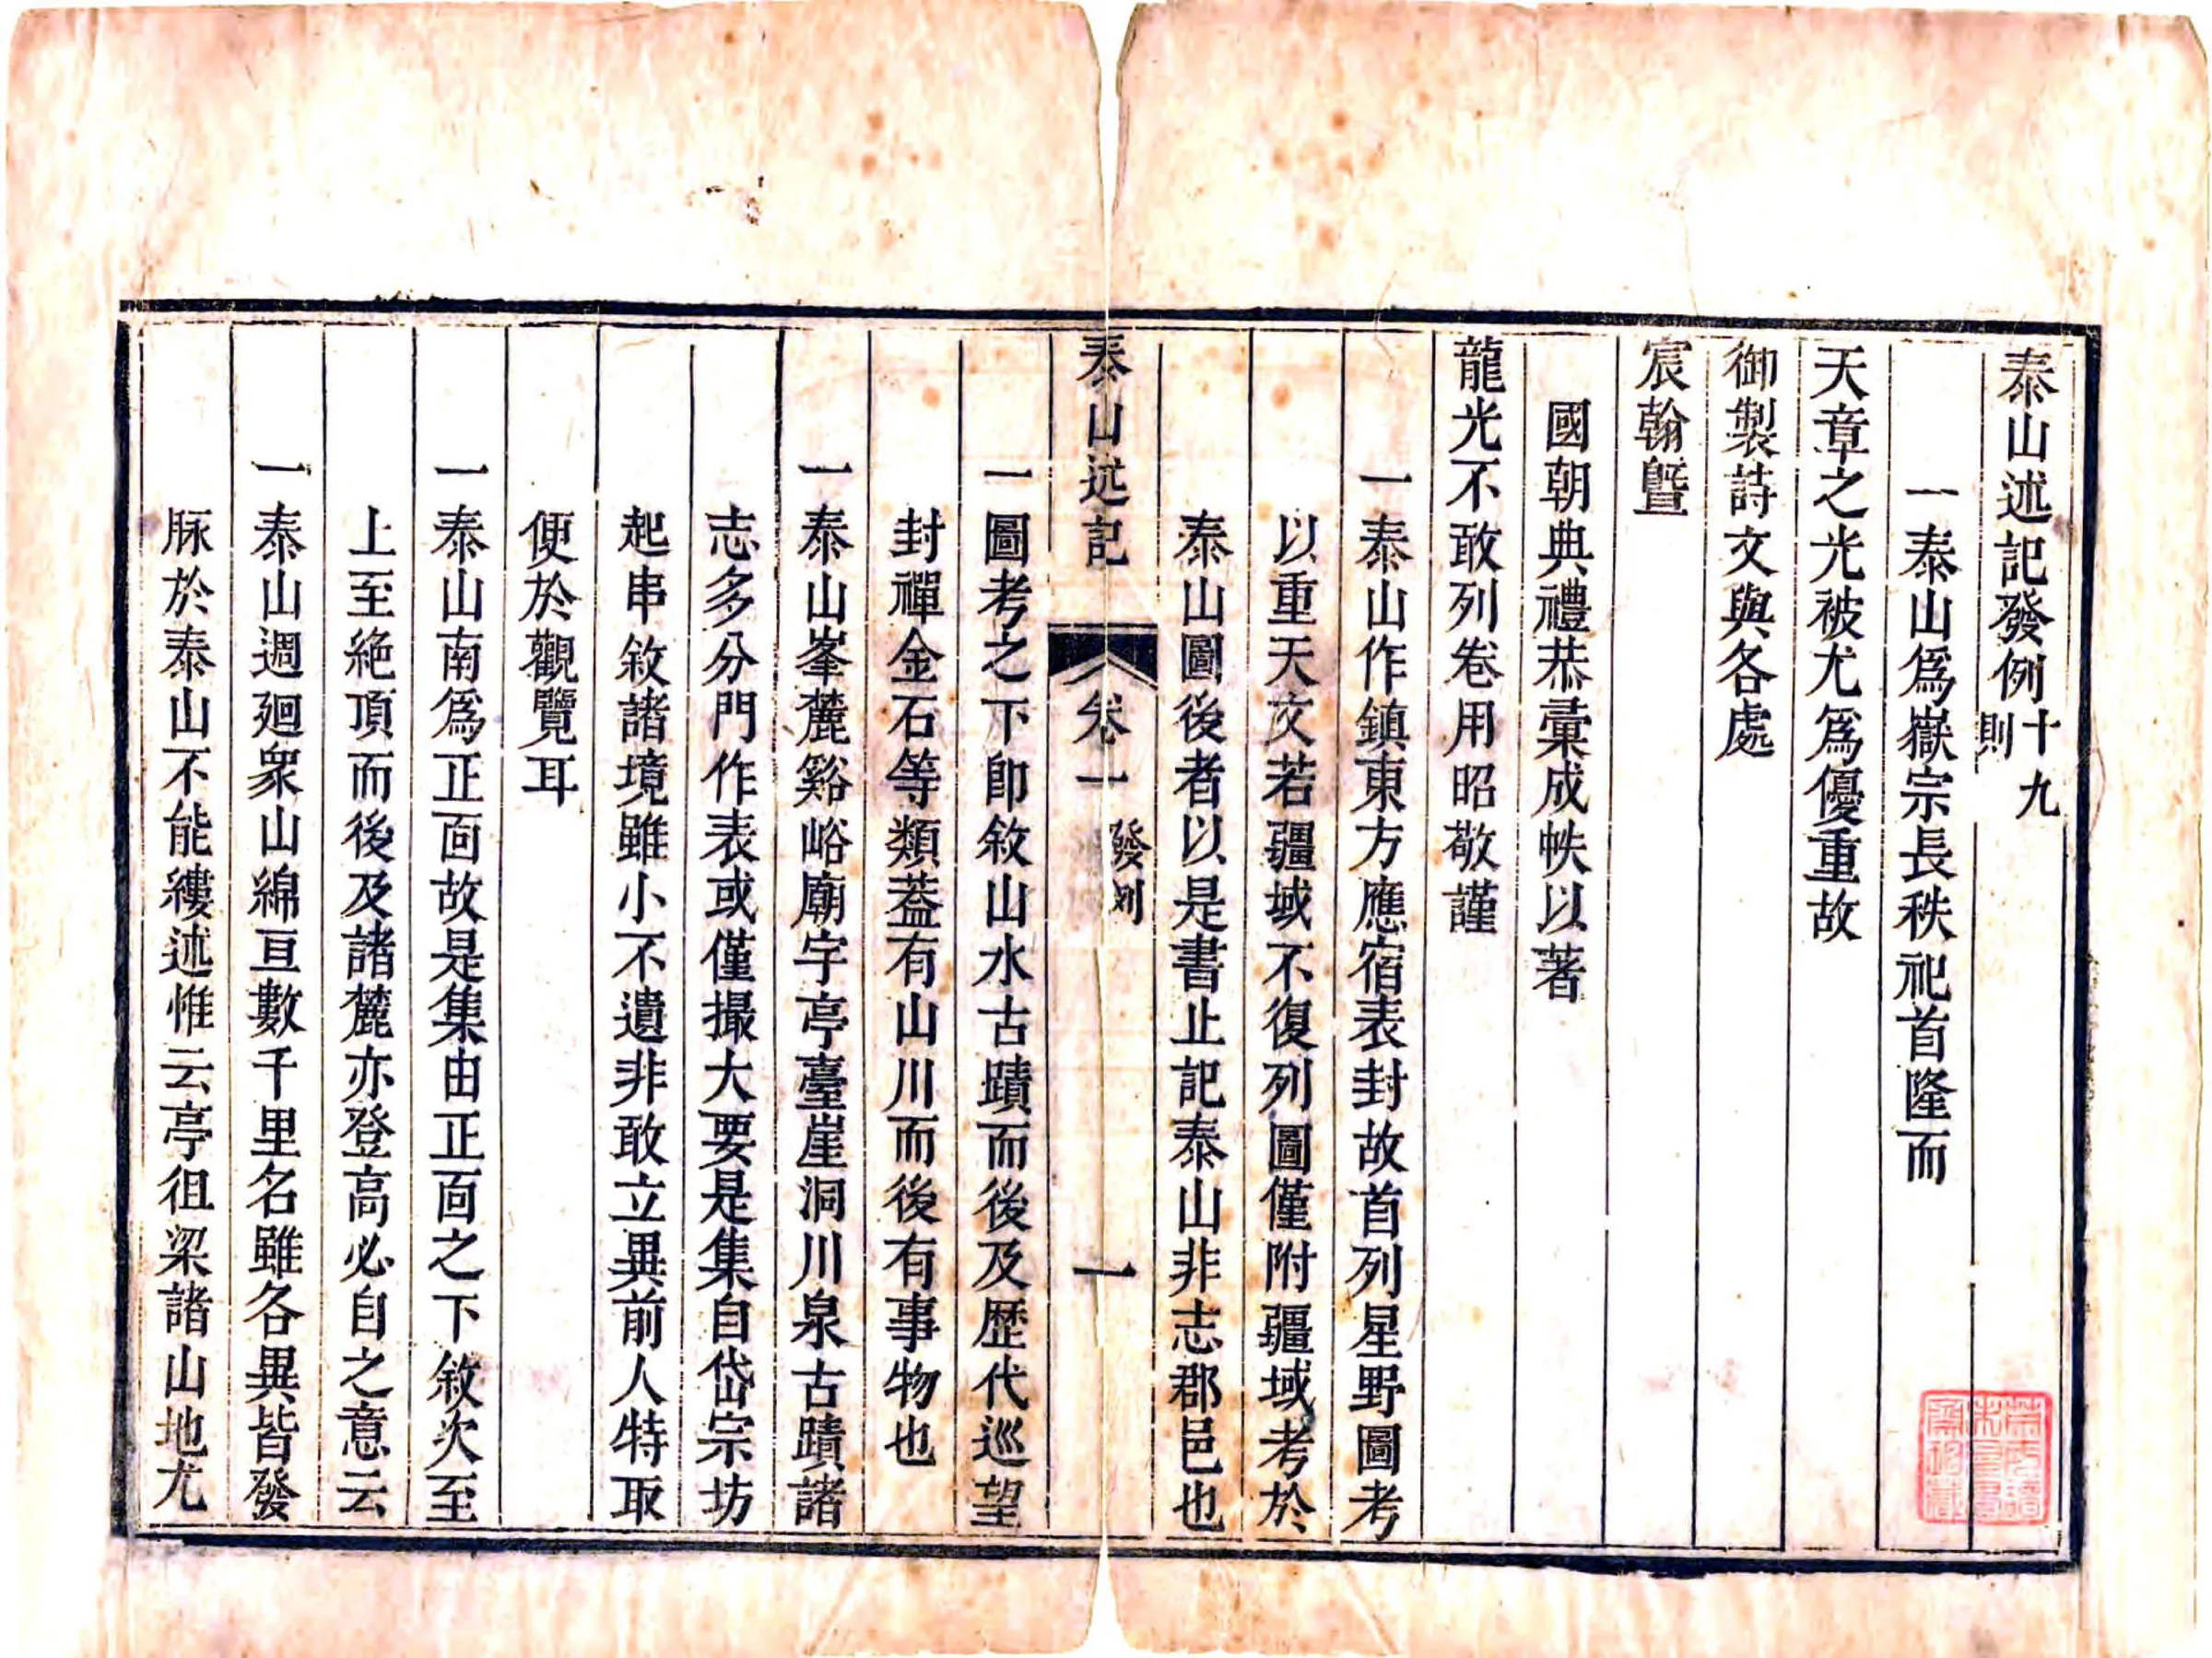 泰山述記發例十九則
一泰山爲嶽宗長秩祀首隆而
天章之光被尤爲優重故
御製詩文與各處
宸翰曁
國朝典禮恭彚成帙以著
龍光不敢列卷用昭敬謹
一泰山作鎮東方應宿表封故首列星野圖考
以重天文若疆域不復列圖僅附疆域考於
泰山圖後者以是書止記泰山非志郡邑也
泰山述記 卷一 發例 一
一圖考之下卽敘山水古蹟而後及歷代巡望
封禪金石等類葢有山川而後有事物也
一泰山峯麓谿峪廟宇亭臺崖洞川泉古蹟諸
志多分門作表或僅撮大要是集自岱宗坊
起串敘諸境雖小不遺非敢立異前人特取
便於觀覽耳
一泰山南爲正面故是集由正面之下敘次至
上至絶頂而後及諸麓亦登高必自之意云
一泰山週廻衆山綿亘數千里名雖各異皆發
脉於泰山不能縷述惟云亭徂梁諸山地尤